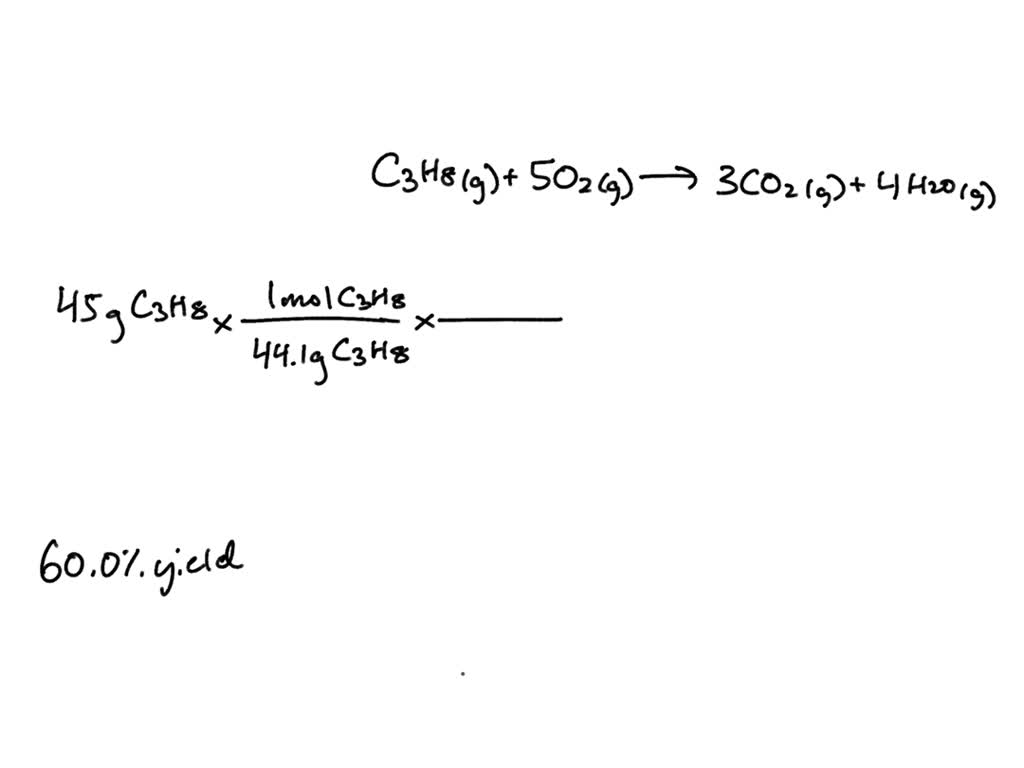 C3H8(g) + 5O2(g) → 3CO2(g) + 4H2O(g)
45g C3H8 × 1mol C3H8 / 44.1g C3H8 ×
60.0% yield